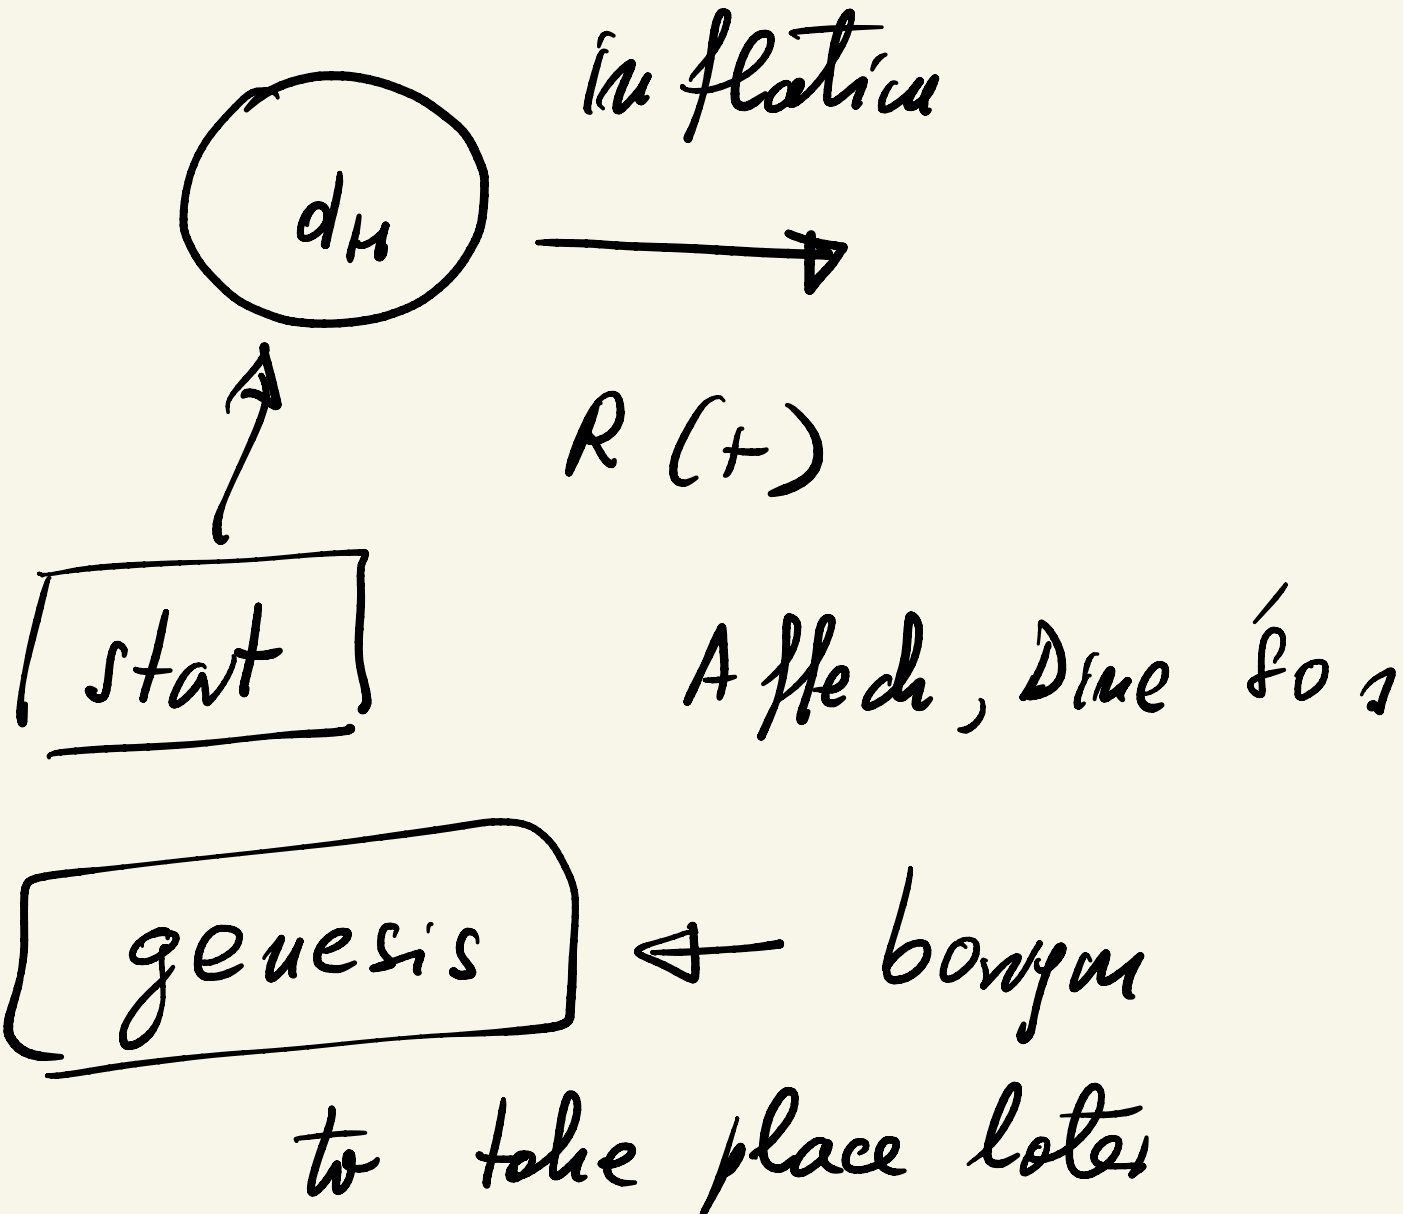 inflation
d_H
R(t)
start
Affleck, Dine '80s
genesis ← baryon
to take place later